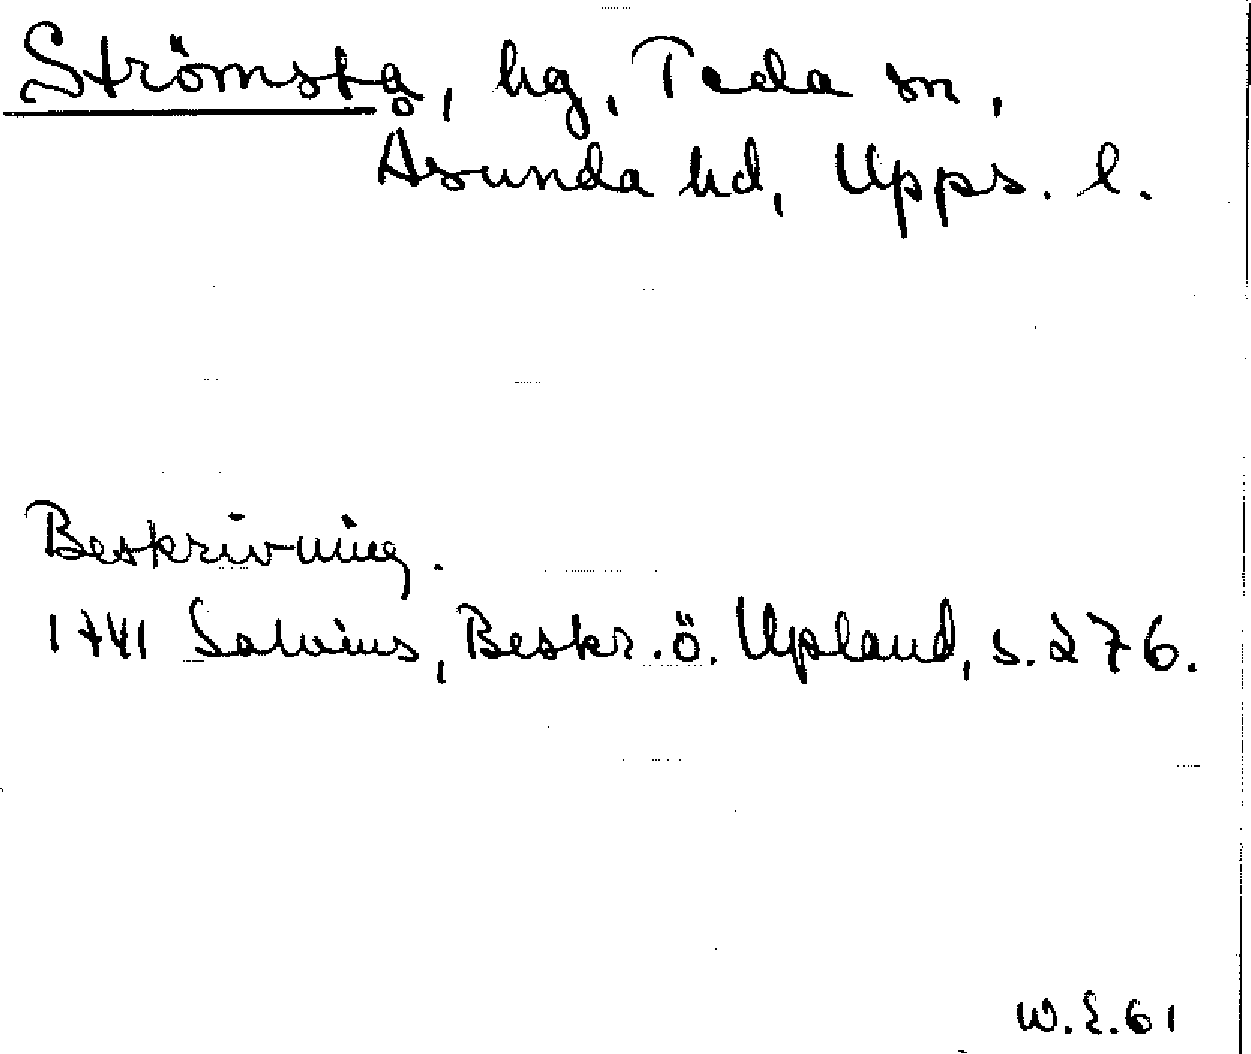 Strömsta, hg, Teda sn,
Åsunda hd, Upps. l.
Beskrivning.
1741 Salvius, Beskr. ö. Upland, s. 276.
W.E.61